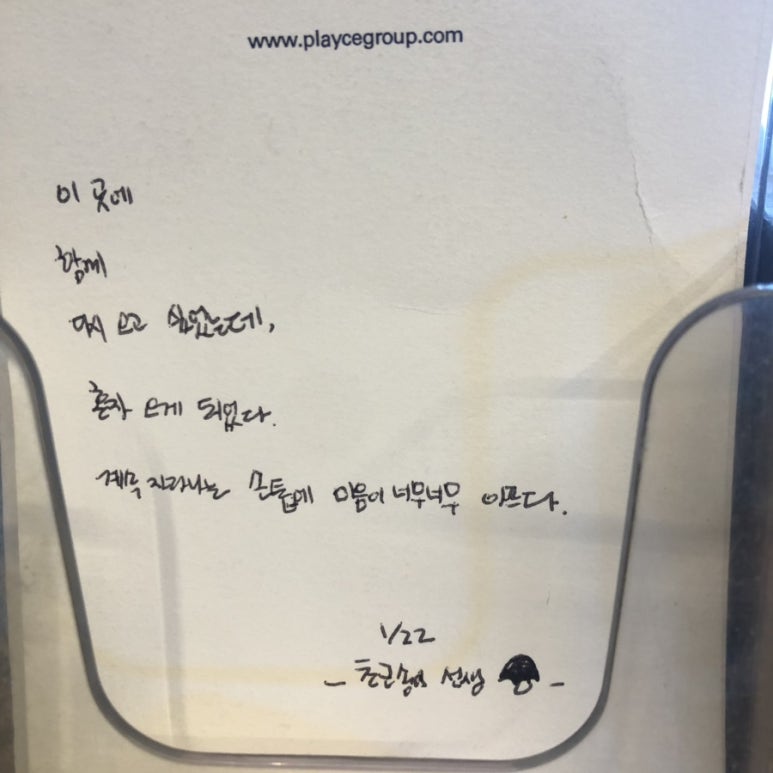 www.playcegroup.com
이 곳에
함께
다시 오고 싶었는데,
혼자 오게 되었다.
계속 자라나는 손톱에 마음이 너무너무 아프다.
1/22
- 선생 -